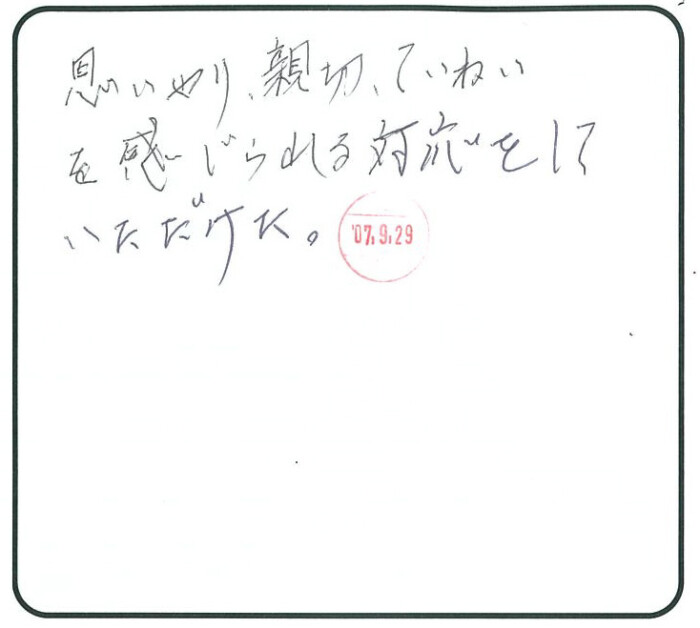 思いやり、親切、ていねい
を感じられる対応をして
いただけた。
'07.9.29